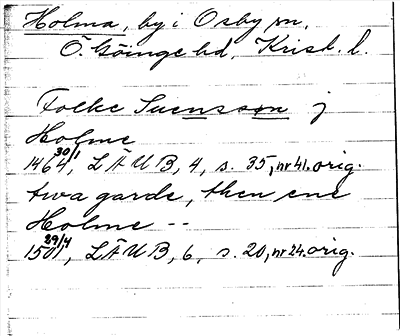 Holma, by i Osby sn,
Ö. Göinge hd, Krist. l.
Folke Suensson j
Holme
1464 30/1, LÄUB, 4, s. 35, nr 41. orig.
twa garde, then ene
Holme --
1501 29/4, LÄUB, 6, s. 20, nr 24. orig.